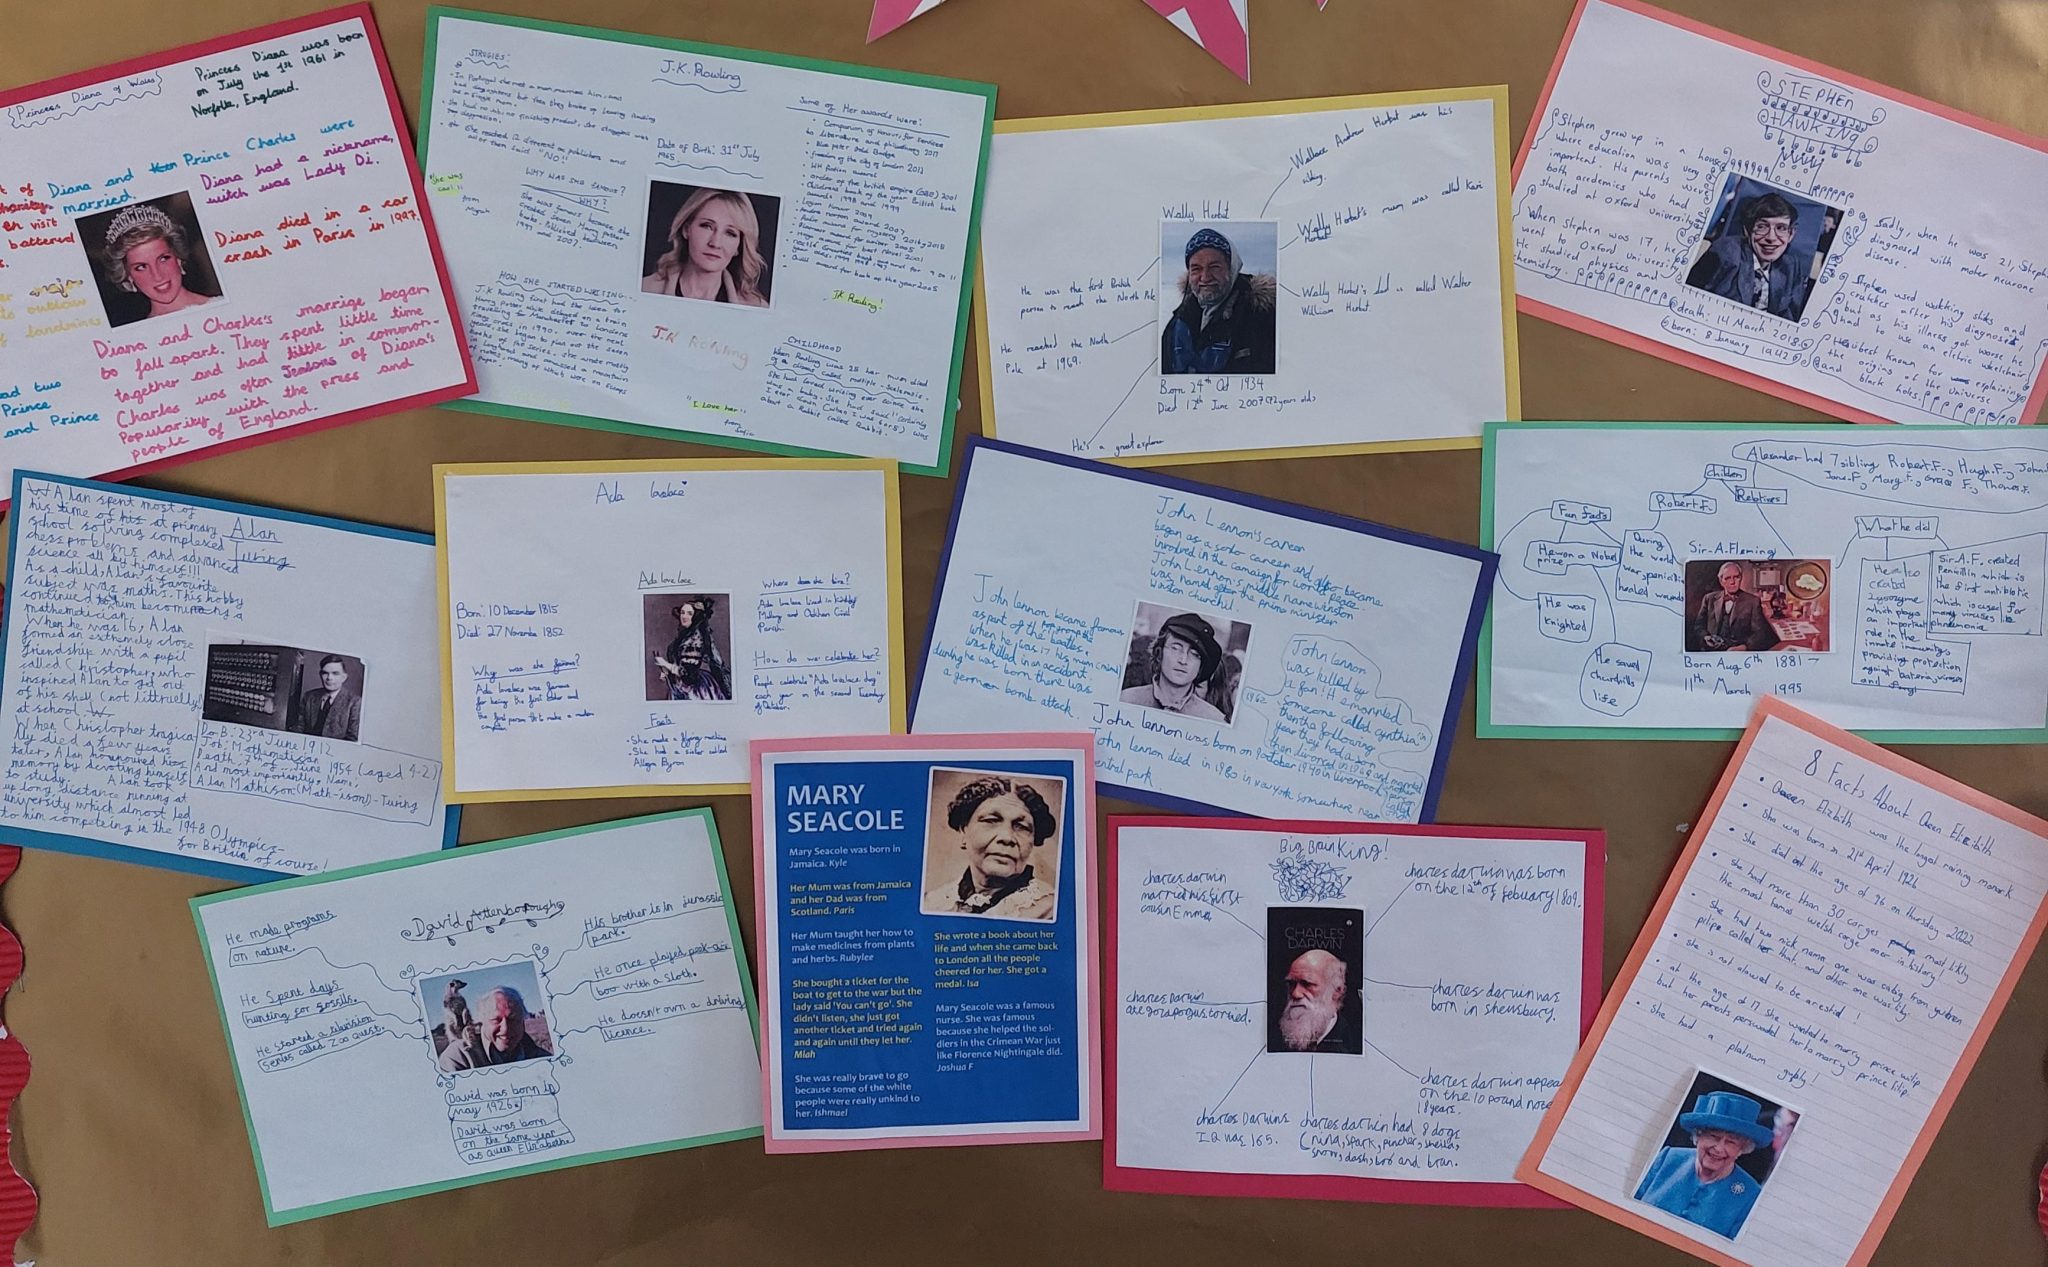 Princess Diana of Wales
Princess Diana was born
on July the 1st 1961 in
Norfolk, England.
Diana and Prince Charles were
married.
Diana had a nickname,
witch was Lady Di.
Diana died in a car
crash in Paris in 1997.
charity.
visit
battered
to outlaw
of landmines
had two
Prince
and Prince
Diana and Charles's marrige began
to fall apart. They spent little time
together and had little in common.
Charles was often Jealous of Diana's
Popularity with the press and
people of England.
J.K. Rowling
Date of Birth: 31st July
1965
She was
cool!!
from
WHY WAS SHE FAMOUS?
WHY?
She was famous because she
created seven Harry Potter
books, published bewtween
1997 and 2007.
HOW SHE STARTED WRITING...
J.K Rowling first had the idea for
Harry Potter while delayed on a train
travelling from Manchester to Londons
Kings cross in 1990. over the next
years, she began to plan out the seven
books of the series. She wrote mostly
in longhand and amassed a mountain
of notes, many of which were on scraps
of paper.
J.K Rowling
"I Love her"
from
Sofia
Some of Her awards were:
Companion of honour, for services
to literature and philanthropy 2017
Blue peter Gold Badge
freedom of the city of london 2012
order of the british empire (OBE) 2001
Childrens book of the year British book
awards 1998 and 1999
JK Rowling!
CHILDHOOD
When Rowling was 25 her mum died
of a disease called multiple-sclerosis.
She had loved writing ever since she
was a baby. She had said "(certainly
I ever wrote down (when I was 5 or 6) was
about a Rabbit called Rabbit."
Wally Herbert
Wallace Andrew Herbert was his
Wally Herbet's mum was called Kari
Herbet
Wally Herbet's dad is called Walter
William Herbet.
He was the first British
person to reach the North Pole
He reached the North
Pole at 1969.
Born 24th Oct 1934
Died 12th June 2007 (72 years old)
He's a great explorer
STEPHEN
HAWKING
Stephen grew up in a house
where education was very
important. His parents were
both academics who had
studied at Oxford university
When Stephen was 17, he
went to Oxford University
He studied physics and
chemistry.
Sadly, when he was 21, Stephen
diagnosed with moter neurone
disease
Stephen used walking sticks and
crutches after his diagnosis
but as his illness got worse he
had to use an eletric wheelchair
He is best known for explaining
the origins of the universe
and black holes.
death: 14 March 2018
born: 8 January 1942
Alan
Turing
Alan spent most of
his time of his at primary
school solving complexed
chess problems and advanced
science all by himself!!!
As a child, Alan's favourite
subject was maths. This hobby
continued to him becomeing a
mathematician.
When he was 16, Alan
formed an extremely close
friendship with a pupil
called Christopher, who
inspired Alan to get out
of his shell (not littrually)
at school.
When Christopher tragica-
lly died a few years
later, Alan honoured his
memory by devoting himself
to study. Alan took
up long distance running at
university which almost led
to him competeing in the 1948 Olympics-
for Britain of course!
DoB: 23rd June 1912
Job: Mathematician
Death 7th of June 1954 (aged 42)
And most importantly, Name,
Alan Mathison (Math-ison) - Turing
Ada lovelace
Ada lovelace
Born: 10 December 1815
Died: 27 November 1852
Why was she famous?
Ada lovelace was famous
for being the first
the first person to make a modern
computer.
Facts
She made a flying machine
She had a sister called
Allegra Byron
Where does she live?
Ada lovelace lived in Kirkby
Mallory and Ockham Civil
Parish.
How do we celebrate her?
People celebrate "Ada lovelace day"
each year on the second Tuesday
of October.
John Lennon's career
began as a solo career and after became
involved in the campaign for world peace.
John Lennon's middle name winston
was named after the prime minister
winston churchil
John lennon became famous
as part of the pop group the
beatles.
when he was 17 his mum (mimi)
was killed in an accident.
during he was born there was
a german bomb attack.
John lennon
was killed by
a fan! He married
Someone called cynthia in
1962 then the following
year they had a son
then divorced in 1968 and married
another
person
called
John lennon was born on 9 october 1940 in liverpool
John lennon died in 1980 in new york somewhere near
central park.
Alexander had 7 sibling Robert.F., Hugh.F., John
Jane.F., Mary.F., Grace F., Thomas.F.
children
Robert.F.
Relatives
Fun facts
He won a Nobel
prize
He was
knighted
He saved
churchills
life
During
the world
war, penicillin
healed wounds
Sir-A.Fleming
Born Aug 6th 1881 -
11th March 1995
What he did
He also
created
Lysozyme
which plays
an important
role in the
innate immunity,
providing protection
against bacteria, viruses
and fungi
Sir A.F. created
Penicillin which is
the first antibiotic
which is used for
many viruses like
pneumonia
David Attenborough
He made programs
on nature.
He spent days
hunting for fossils.
He started a television
series called Zoo quest.
His brother is in jurassic
park.
He once played peek-a-
boo with a sloth.
He doesn't own a driving
licence.
David was born in
may 1926.
David was born
on the same year
as queen Elizabethe
MARY
SEACOLE
Mary Seacole was born in
Jamaica. Kyle
Her Mum was from Jamaica
and her Dad was from
Scotland. Paris
Her Mum taught her how to
make medicines from plants
and herbs. Rubylee
She bought a ticket for the
boat to get to the war but the
lady said 'You can't go'. She
didn't listen, she just got
another ticket and tried again
and again until they let her.
Miah
She was really brave to go
because some of the white
people were really unkind to
her. Ishmael
She wrote a book about her
life and when she came back
to London all the people
cheered for her. She got a
medal. Isa
Mary Seacole was a famous
nurse. She was famous
because she helped the sol-
diers in the Crimean War just
like Florence Nightingale did.
Joshua F
Big Brain King!
CHARLES
DARWIN
charles darwin
married his first
cousin Emma
charles darwin was born
on the 12th of febuary 1809.
charles darwin was
born in shewsbury.
charles darwin appea
on the 10 pound note
18 years.
charles Darwin
ate goraporgus tormed.
charles Darwins
I Q was 165.
charles darwin had 8 dogs
(nina, spark, pincher, sheila,
snow, dash, bob and bran.
8 Facts About Queen Elizibith
Queen Elizbith was the longest raining monark
She was born on 21st April 1926
She died at the age of 96 on thursday 2022
She had more than 30 corgies most likly
the most famos welsh corgie over in history!
She had two nick name one was cabig from
pilipe called her that and other one was lily.
She is not alowed to be arested!
at the age of 17 she wanted to marry prince
but her parents persuaded her to marry prince
She had a platinum